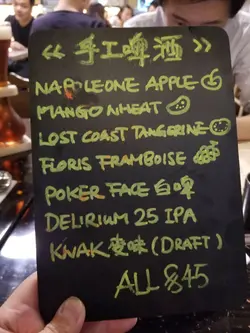 《手工啤酒》
NAPOLEONE APPLE
MANGO WHEAT
LOST COAST TANGERINE
FLORIS FRAMBOISE
POKER FACE 白啤
DELIRIUM 25 IPA
KWAK 變味 (DRAFT)
ALL $45